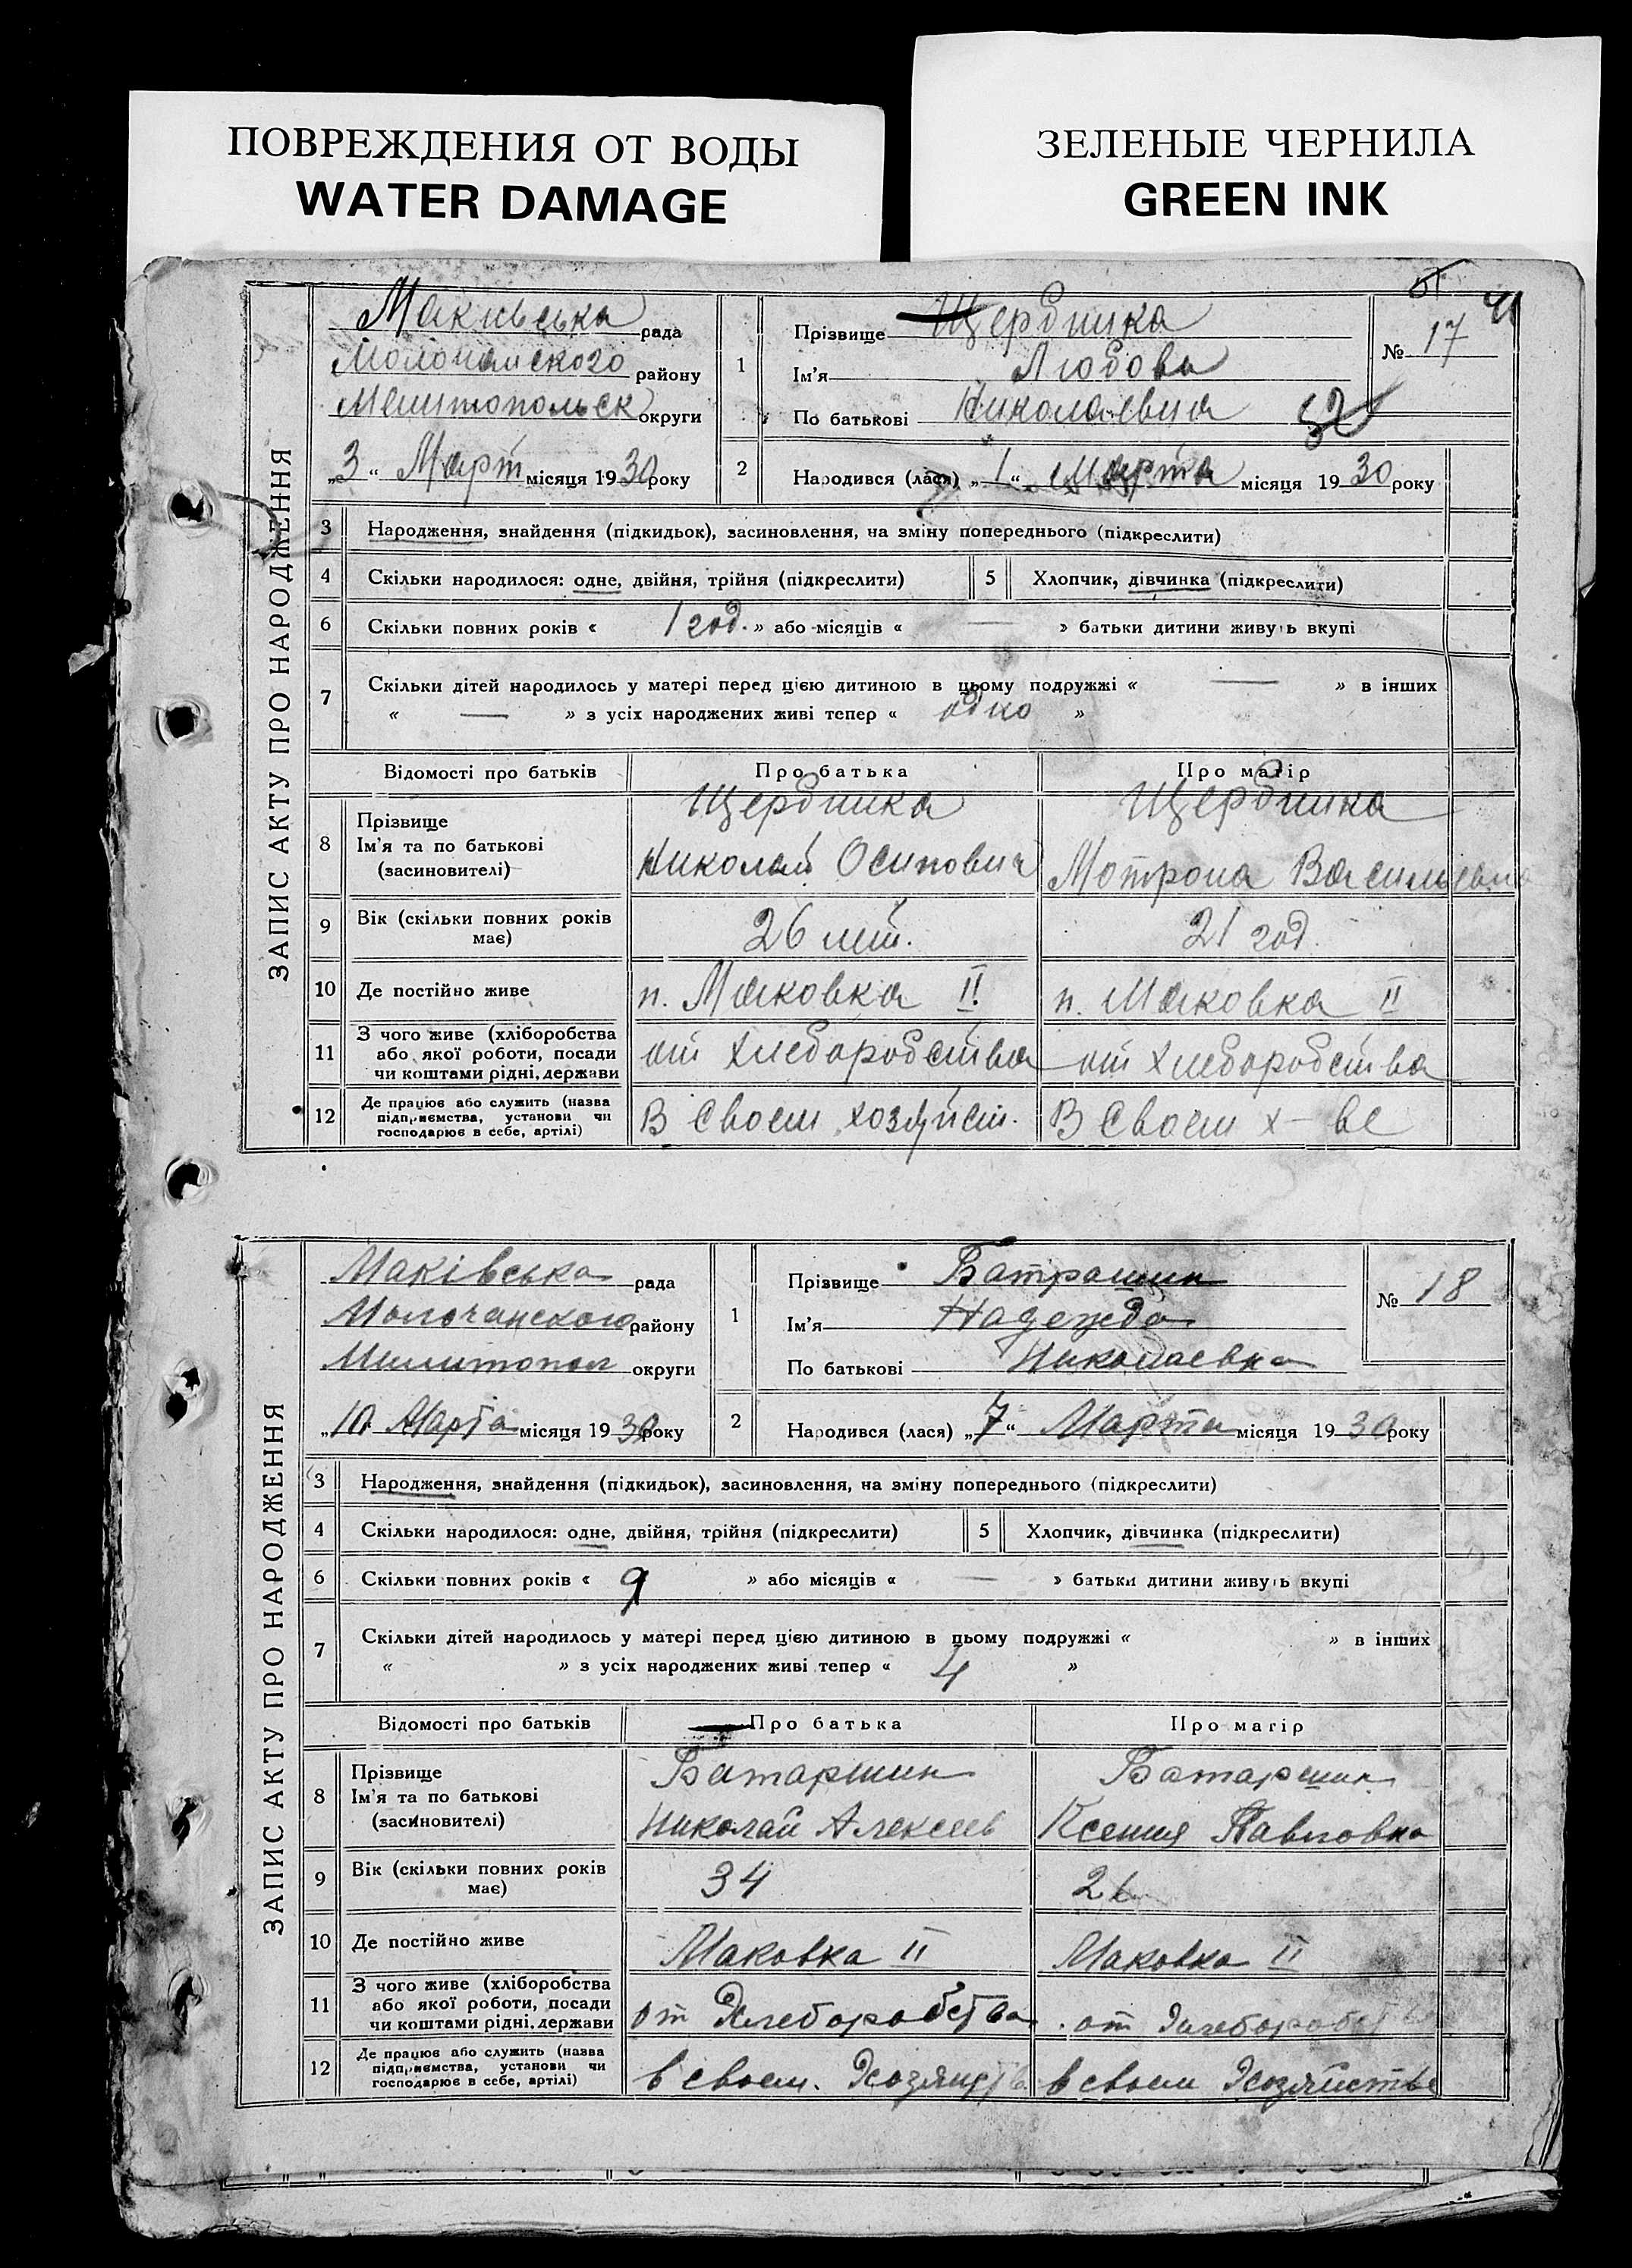 ПОВРЕЖДЕНИЯ ОТ ВОДЫ
WATER DAMAGE
ЗЕЛЕНЫЕ ЧЕРНИЛА
GREEN INK
ЗАПИС АКТУ ПРО НАРОДЖЕННЯ
Маківська рада
Молочанского району
Мелитопольск округи
„3“ Март місяця 1930 року
1 Прізвище Щербина
Ім'я Любовь
По батькові Николаевна
52
№ 17
2 Народився (лася) „1“ Марта місяця 1930 року
3 Народження, знайдення (підкидьок), засиновлення, на зміну попереднього (підкреслити)
4 Скільки народилося: одне, двійня, трійня (підкреслити) 5 Хлопчик, дівчинка (підкреслити)
6 Скільки повних років « 1 год. » або місяців « — » батьки дитини живуть вкупі
7 Скільки дітей народилось у матері перед цією дитиною в цьому подружжі « — » в інших
« — » з усіх народжених живі тепер « одно »
Відомості про батьків Про батька Про матір
8 Прізвище Щербина Щербина
Ім'я та по батькові Николай Осипович Мотрона Васильевна
(засиновителі)
9 Вік (скільки повних років має) 26 лет. 21 год.
10 Де постійно живе п. Маковка II. п. Маковка II
11 З чого живе (хліборобства
або якої роботи, посади от хлеборобства от хлеборобства
чи коштами рідні, держави
12 Де працює або служить (назва
підприємства, установи чи В своем хозяйст. В своем х-ве
господарює в себе, артілі)
ЗАПИС АКТУ ПРО НАРОДЖЕННЯ
Маківська рада
Молочанского району
Мелитопол округи
„10 Марта місяця 1930 року
1 Прізвище Батрашин
Ім'я Надежда
По батькові Николаевна
№ 18
2 Народився (лася) „7“ Марта місяця 1930 року
3 Народження, знайдення (підкидьок), засиновлення, на зміну попереднього (підкреслити)
4 Скільки народилося: одне, двійня, трійня (підкреслити) 5 Хлопчик, дівчинка (підкреслити)
6 Скільки повних років « 9 » або місяців « — » батьки дитини живуть вкупі
7 Скільки дітей народилось у матері перед цією дитиною в цьому подружжі « » в інших
« » з усіх народжених живі тепер « 4 »
Відомості про батьків Про батька Про матір
8 Прізвище Батаршин Батаршин
Ім'я та по батькові Николай Алексеев Ксения Павловна
(засиновителі)
9 Вік (скільки повних років має) 34
10 Де постійно живе Маковка II Маковка II
11 З чого живе (хліборобства
або якої роботи, посади от Хлеборобства от Хлеборобст
чи коштами рідні, держави
12 Де працює або служить (назва
підприємства, установи чи в своем. Хозяйства в своем Хозяйстве
господарює в себе, артілі)